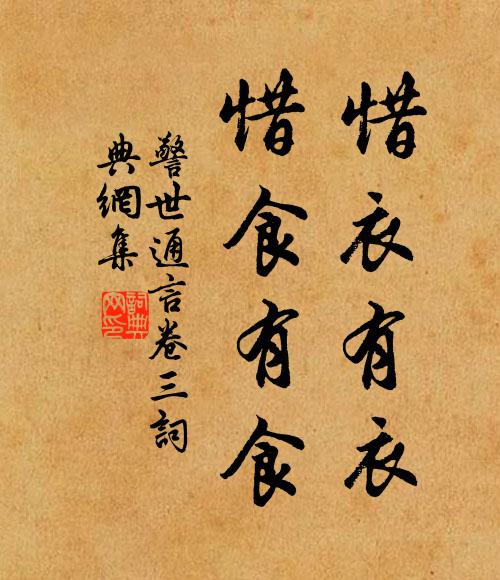 惜衣有衣
惜食有食
警世通言卷三詞
典網集
詞典
网印